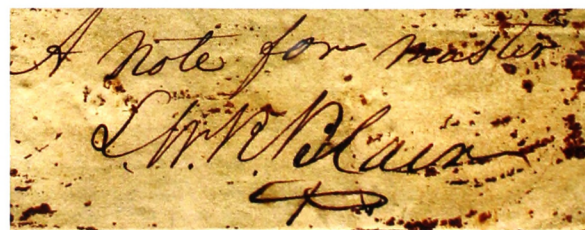 A note for master
L. W. R. Blair